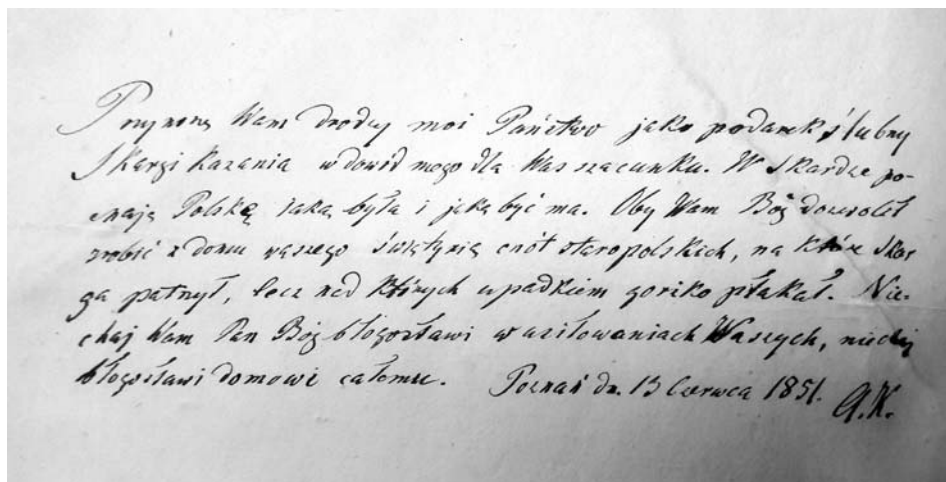 Przynoszę Wam drodzy moi Państwo jako podarek ślubny
Skargi Kazania w dowód mego dla Was szacunku. W Skardze po-
znają Polskę jaką była i jaką być ma. Oby Wam Bóg dozwolił
zrobić z domu waszego świątynią cnót staropolskich, na które Skar
ga patrzył, lecz nad których upadkiem gorżko płakał. Nie-
chaj Wam Pan Bóg błogosławi w usiłowaniach Waszych, niechaj
błogosławi domowi całomu. Poznań dn. 13 Czerwca 1851.
A.K.